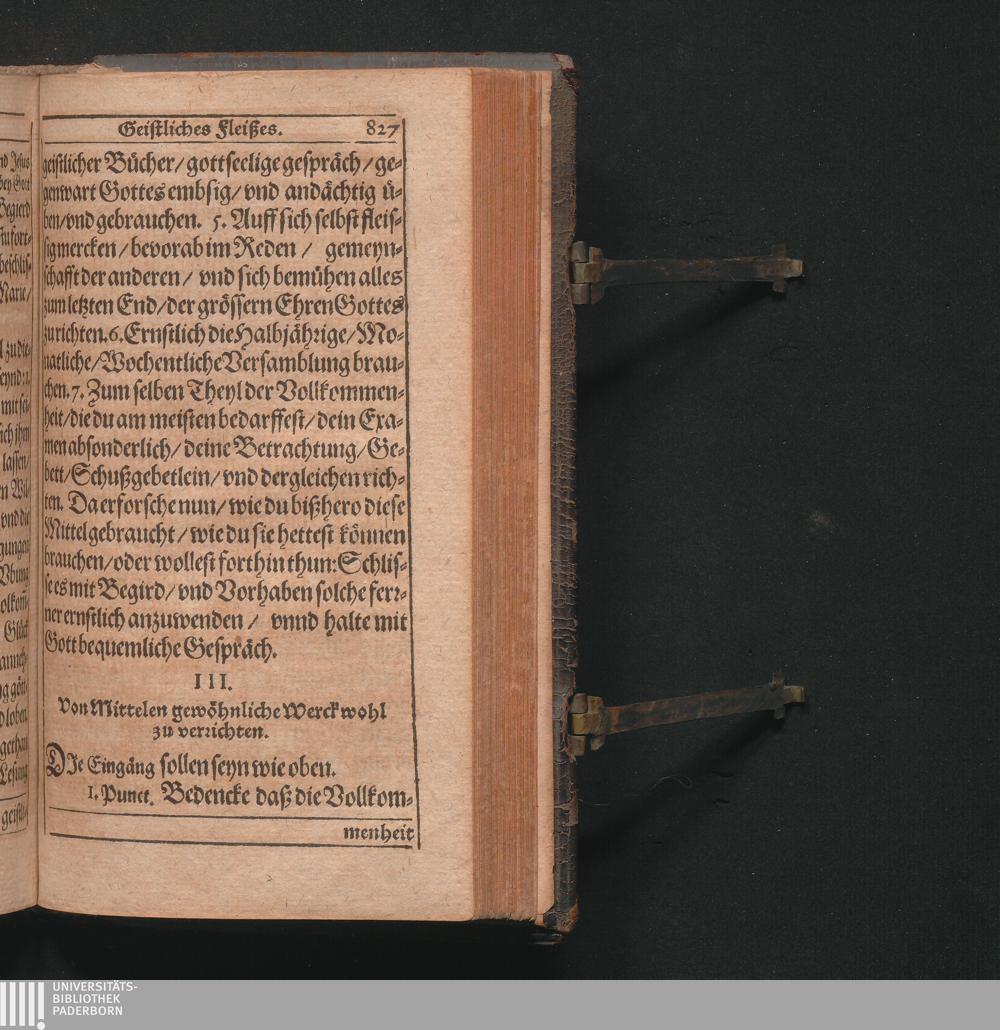 Geistliches Fleißes. 827
geistlicher Bücher/ gottseelige gespräch/ ge-
genwart Gottes embsig/ vnd andächtig ü-
ben/vnd gebrauchen. 5. Auff sich selbst fleis-
sig mercken/ bevorab im Reden / gemeyn-
schafft der anderen/ vnd sich bemühen alles
zum letzten End/ der grössern Ehren Gottes
zu richten. 6. Ernstlich die Halbjährige/ Mo-
natliche/ Wochentliche Versamblung brau-
chen. 7. Zum selben Theyl der Vollkommen-
heit/ die du am meisten bedarffest/ dein Exa-
men absonderlich/ deine Betrachtung/ Ge-
bett/ Schußgebetlein/ vnd dergleichen rich-
ten. Da erforsche nun/ wie du bißhero diese
Mittel gebraucht/ wie du sie hettest können
brauchen/ oder wollest forthin thun: Schlis-
se es mit Begird/ vnd Vorhaben solche ferr-
ner ernstlich anzuwenden / vnnd halte mit
Gott bequemliche Gespräch.
III.
Von Mittelen gewöhnliche Werck wohl
zu verrichten.
DJe Eingäng sollen seyn wie oben.
1. Punct. Bedencke daß die Vollkom-
menheit
nd Jesus
bey Gott
Begierd
Marie/
mit
ich jhm
lassen/
vnd die
gungen
Vbung
Glück
d loben
gethan
Lesung
geistli-
UNIVERSITÄTS-
BIBLIOTHEK
PADERBORN